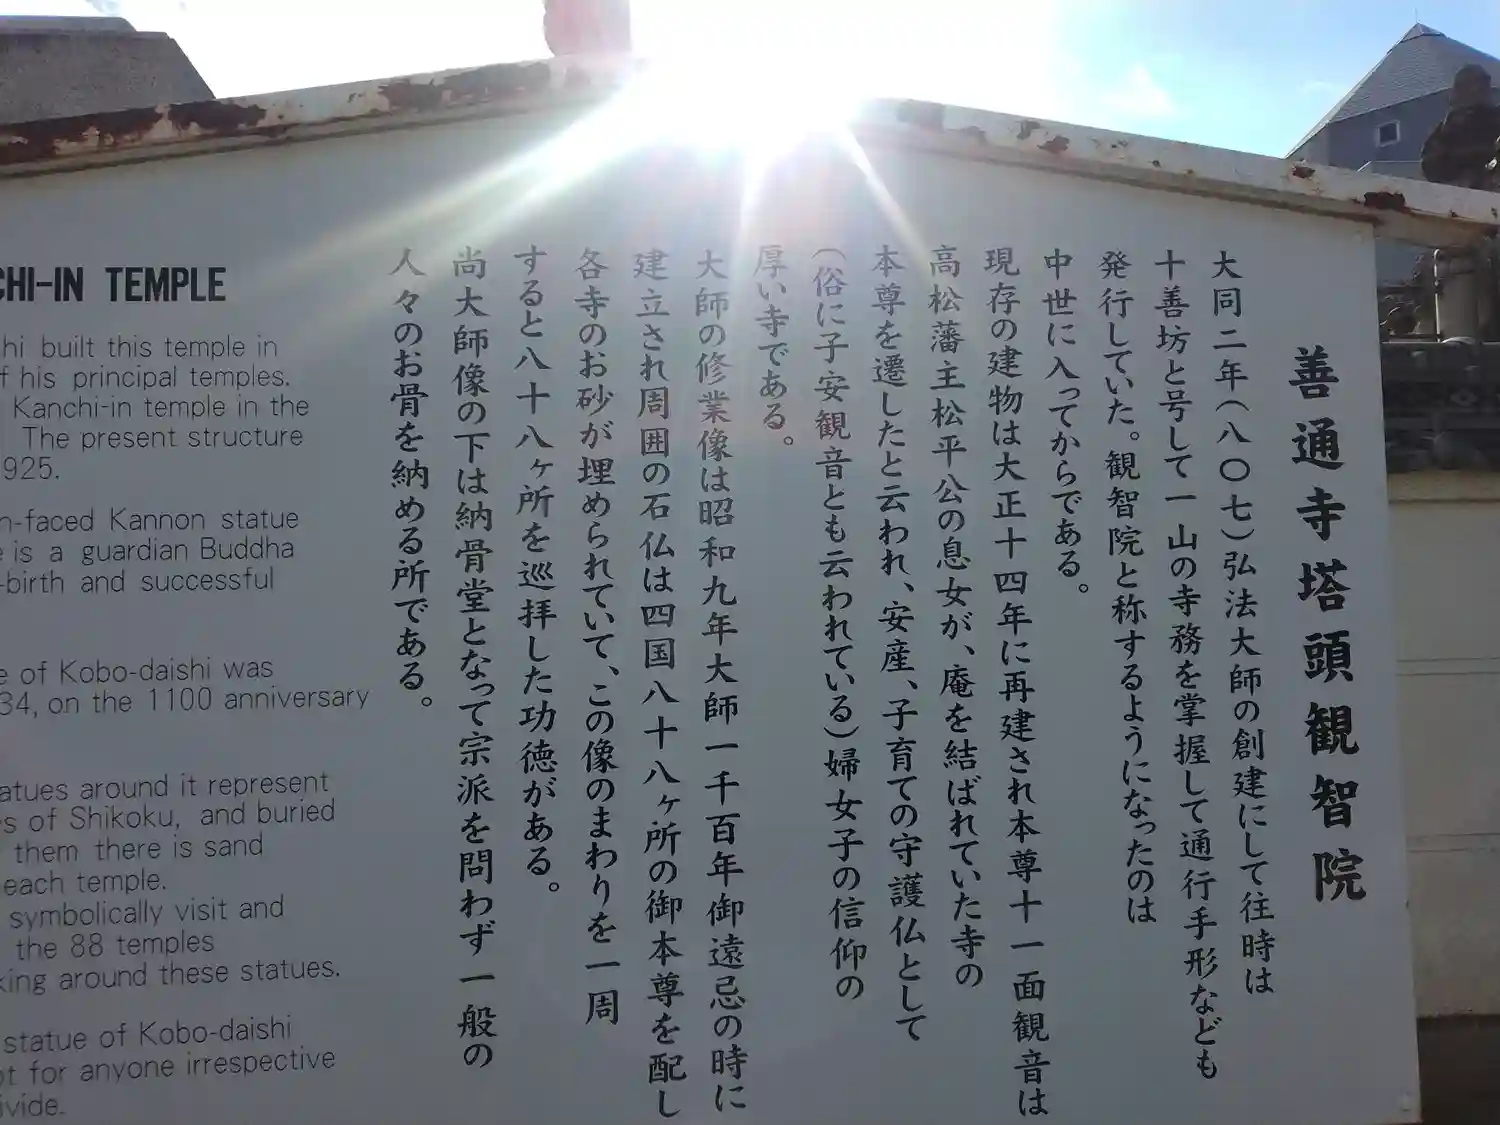 善通寺塔頭観智院
大同二年(八〇七)弘法大師の創建にして往時は
十善坊と号して一山の寺務を掌握して通行手形なども
発行していた。観智院と称するようになったのは
中世に入ってからである。
現存の建物は大正十四年に再建され本尊十一面観音は
高松藩主松平公の息女が、庵を結ばれていた寺の
本尊を遷したと云われ、安産、子育ての守護仏として
(俗に子安観音とも云われている)婦女子の信仰の
厚い寺である。
大師の修業像は昭和九年大師一千百年御遠忌の時に
建立され周囲の石仏は四国八十八ヶ所の御本尊を配し
各寺のお砂が埋められていて、この像のまわりを一周
すると八十八ヶ所を巡拝した功徳がある。
尚大師像の下は納骨堂となって宗派を問わず一般の
人々のお骨を納める所である。
CHI-IN TEMPLE
hi built this temple in
f his principal temples.
Kanchi-in temple in the
The present structure
925.
n-faced Kannon statue
e is a guardian Buddha
-birth and successful
e of Kobo-daishi was
34, on the 1100 anniversary
atues around it represent
s of Shikoku, and buried
them there is sand
each temple.
symbolically visit and
the 88 temples
king around these statues.
statue of Kobo-daishi
ot for anyone irrespective
ivide.